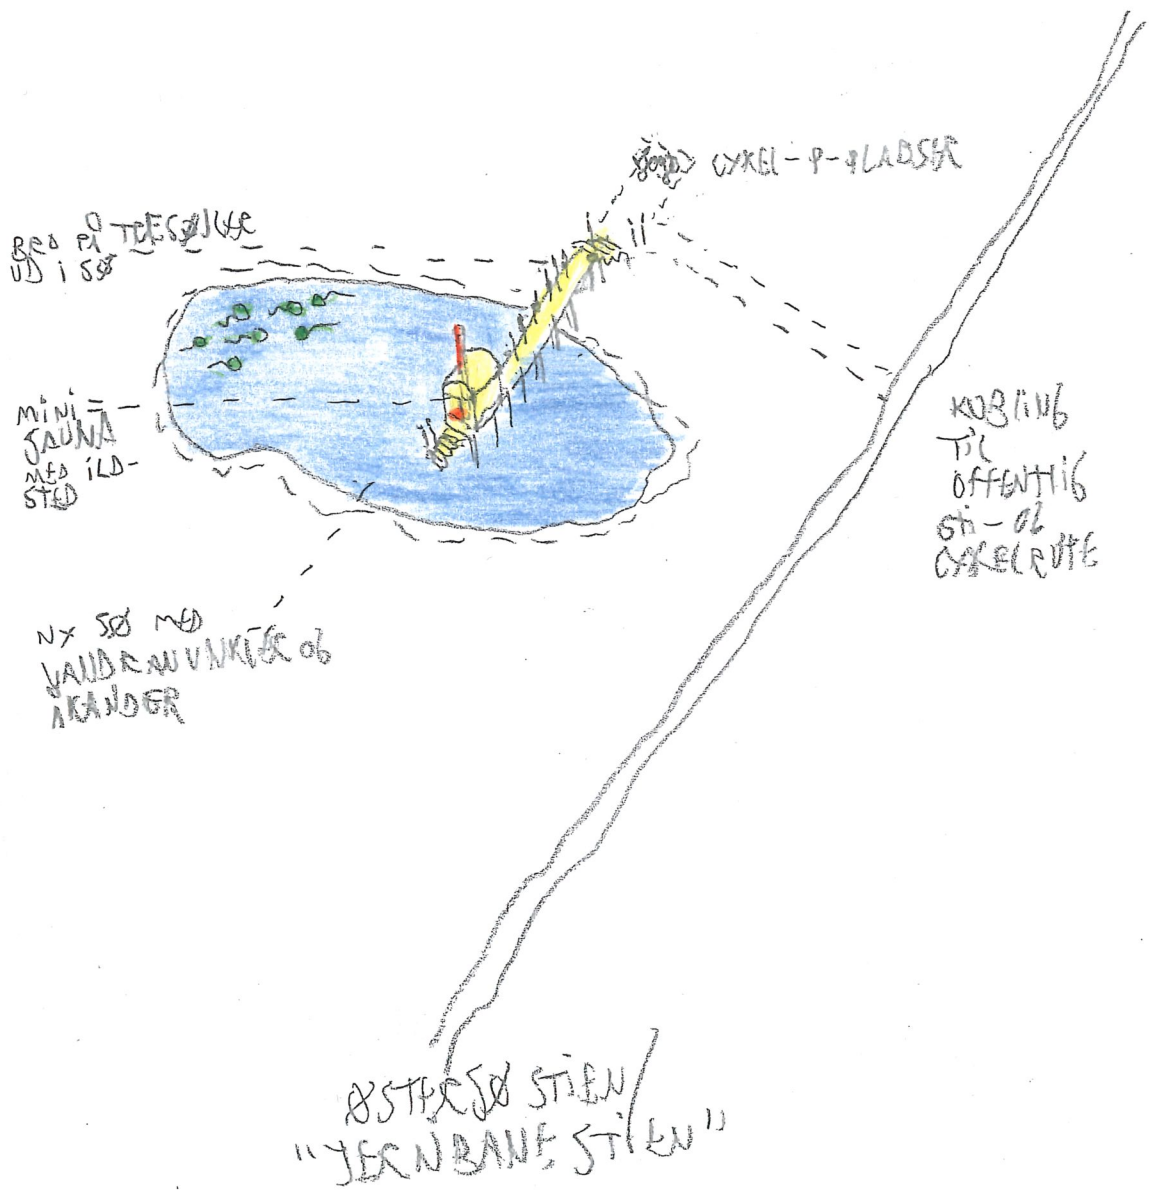 CYKEL-P-PLADSER
BRO PÅ TRÆSØJLER
UD I SØ
MINI-
SAUNA
MED ILD-
STED
KOBLING
TIL
OFFENTLIG
STI- OG
CYKELRUTE
NY SØ MED
VANDRANUNKLER OG
ÅKANDER
ØSTERSØ STIEN/
"JERNBANE STIEN"